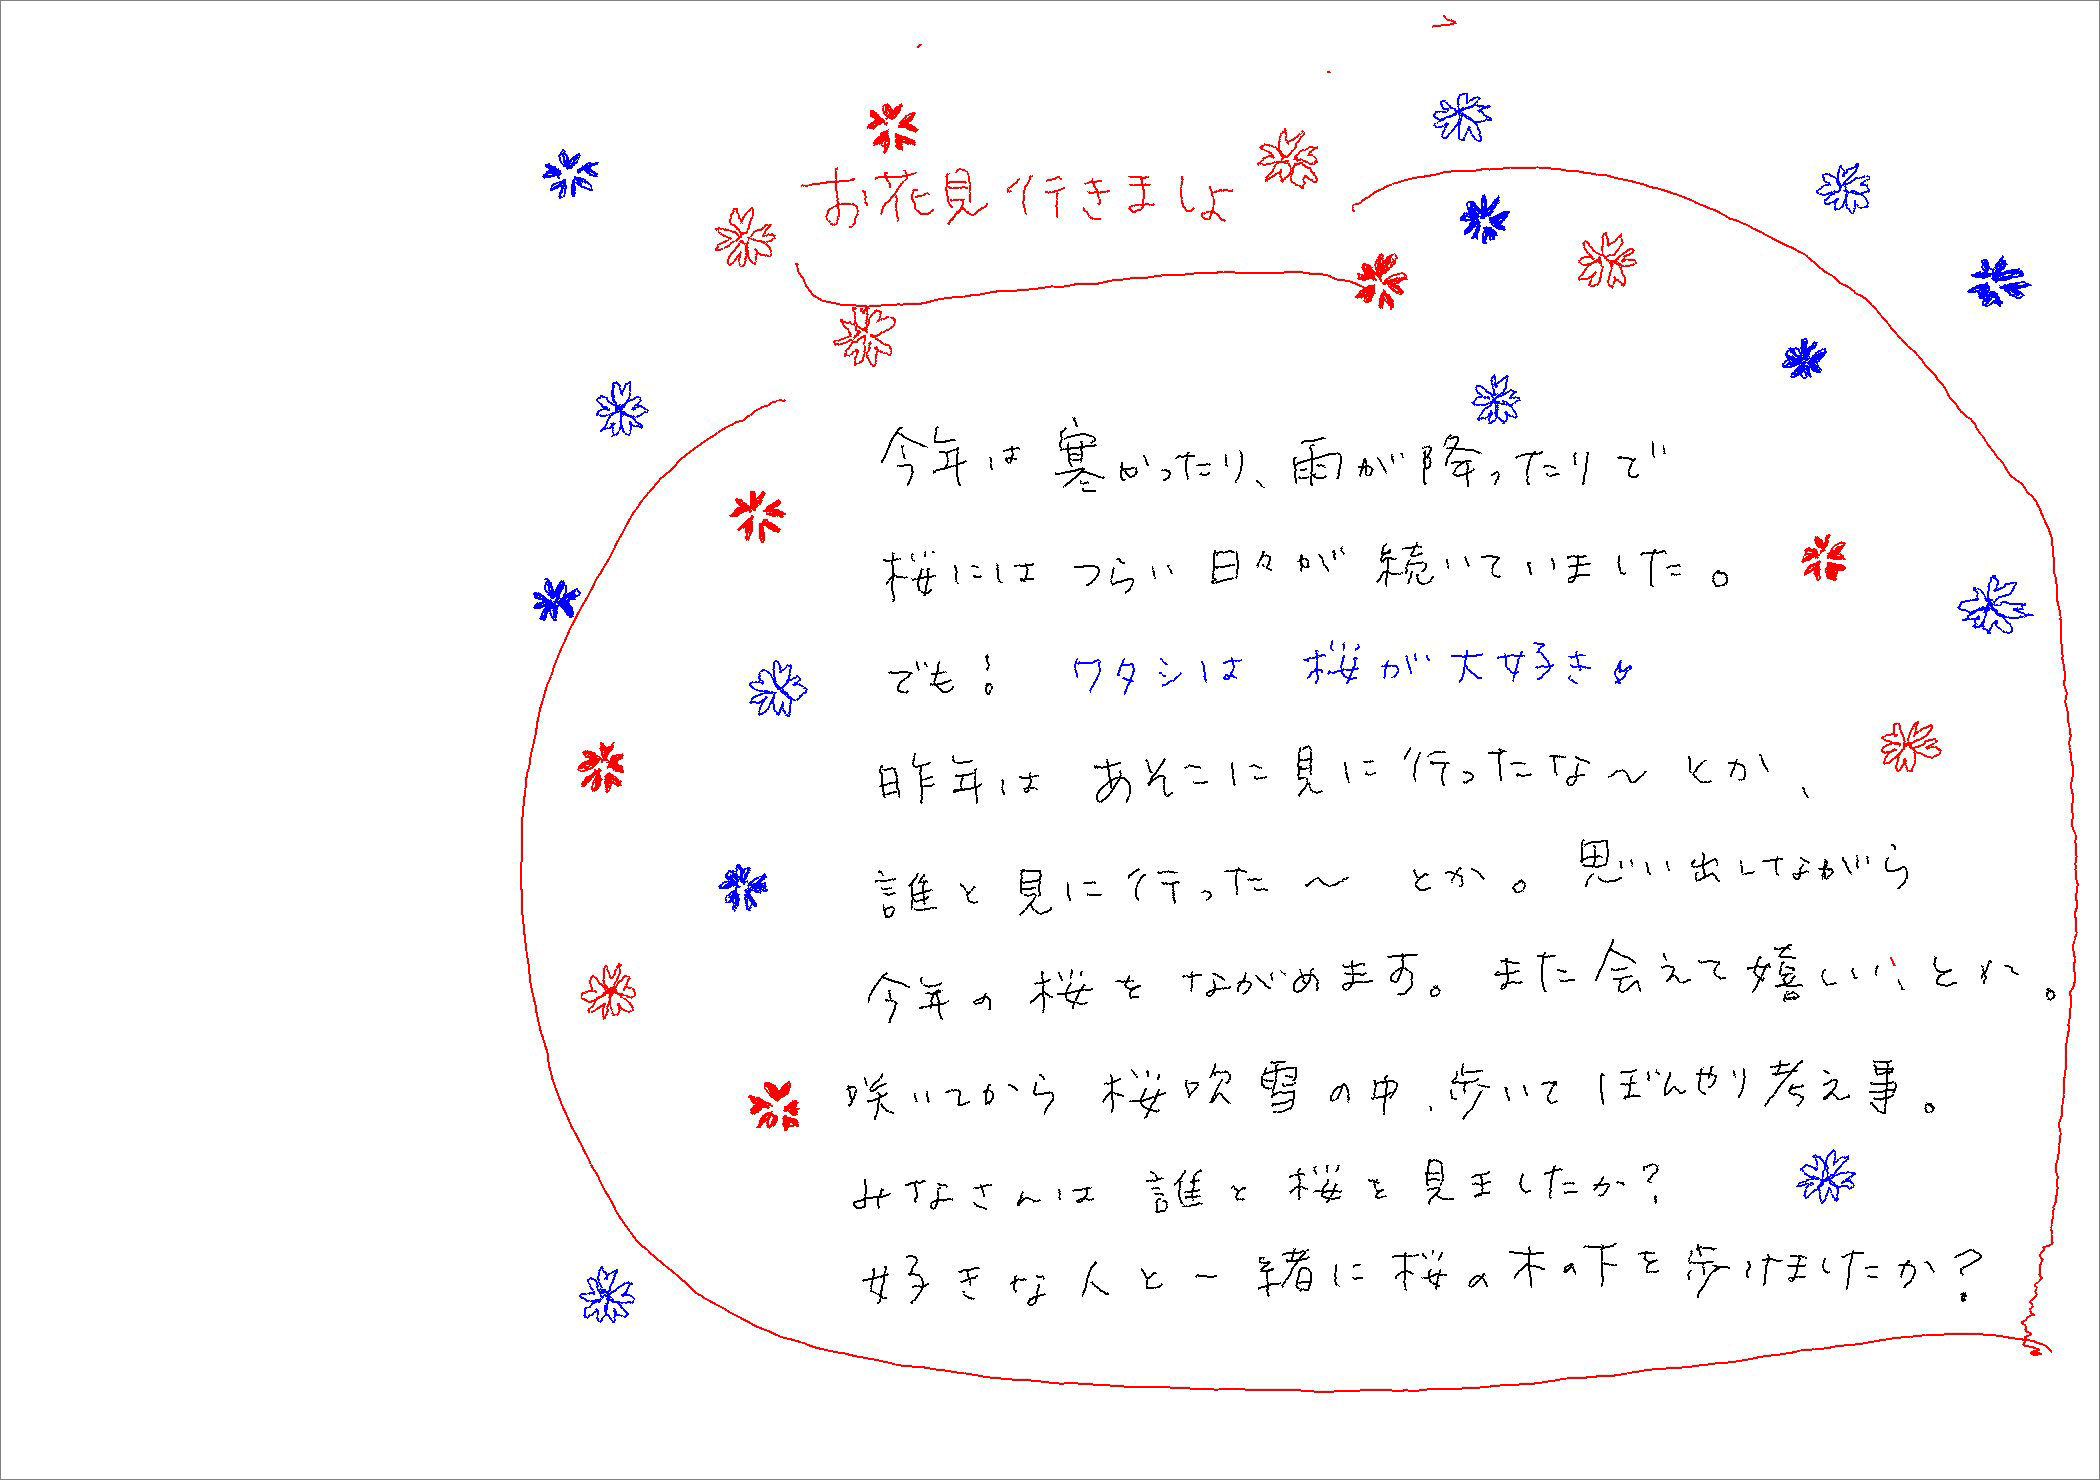 お花見行きましょ
今年は寒かったり、雨が降ったりで
桜にはつらい日々が続いていました。
でも！ ワタシは 桜が大好き♥
昨年は あそこに見に行ったな〜とか、
誰と見に行った〜とか。思い出しながら
今年の桜をながめます。また会えて嬉しい、とか。
咲いてから桜吹雪の中、歩いてぼんやり考え事。
みなさんは誰と桜を見ましたか？
好きな人と一緒に桜の木の下を歩けましたか？